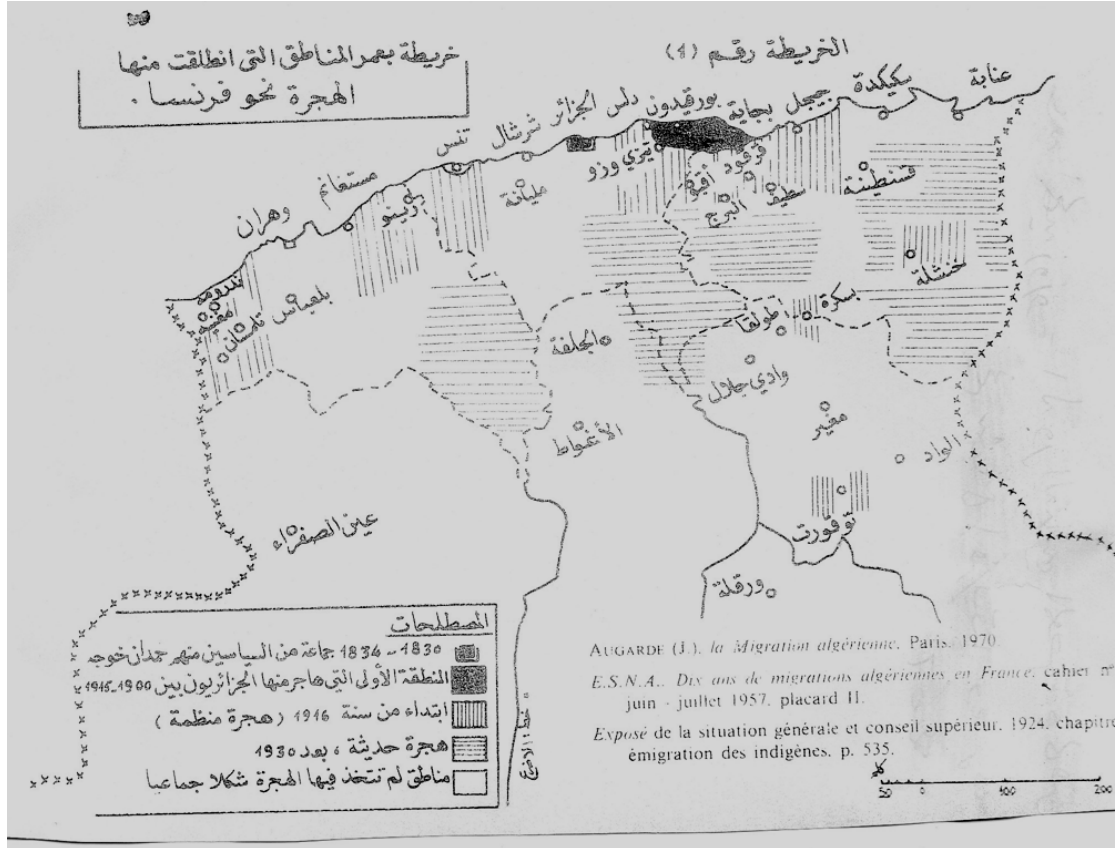 الخريطة رقم (1)
خريطة بعمر المناطق التي انطلقت منها
الهجرة نحو فرنسا.
عنابة
سكيكدة
جيجل
بجاية
بورقيدون
دلس
الجزائر
شرشال
تنس
مستغانم
وهران
تيزي وزو
قرقور
أقبو
البرج
سطيف
قسنطينة
مليانة
رينو
ندرومة
مغنية
تلمسان
بلعباس
خنشلة
بسكرة
طولقا
الجلفة
وادي جلال
مغير
الأغواط
الواد
توقورت
عين الصفراء
ورقلة
المصطلحات
1830 - 1834 جماعة من السياسين منهم حمدان خوجه
المنطقة الأولى التي هاجر منها الجزائريون بين 1900-1915
ابتداء من سنة 1916 (هجرة منظمة)
هجرة حديثة، بعد 1930
مناطق لم تتخذ فيها الهجرة شكلا جماعيا
AUGARDE (J.). la Migration algérienne. Paris. 1970.
E.S.N.A.. Dix ans de migrations algériennes en France. cahier n°
juin - juillet 1957. placard II.
Exposé de la situation générale et conseil supérieur. 1924. chapitre
émigration des indigènes. p. 535.
كلم
50 0 100 200